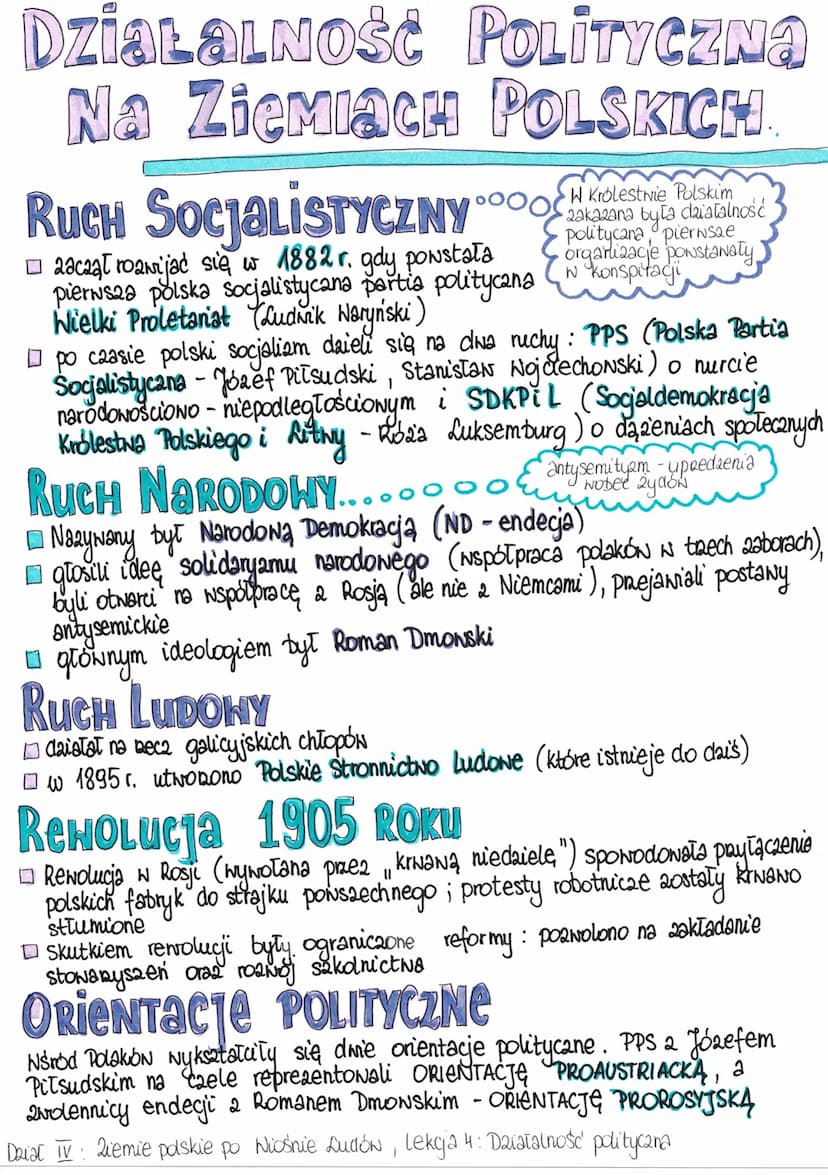 Działalność Polityczna
Na Ziemiach Polskich.
Ruch Socjalistyczny
W Królestwie Polskim
zakazana była działalność
polityczna, pierwsze
organizacje powstawały
w konspitacji
zaczął rozwijać się w 1882 r. gdy powstała
pierwsza polska socjalistyczna partia polityczna
Wielki Proletariat (Ludwik Waryński)
po czasie polski socjalizm dzieli się na dwa ruchy: PPS (Polska Partia
Socjalistyczna - Józef Piłsudski, Stanisław Wojciechowski) o nurcie
narodowościowo - niepodległościowym i SDKPiL (Socjaldemokracja
Królestwa Polskiego i Litwy - Róża Luksemburg) o dążeniach społecznych
Ruch Narodowy........
antysemityzm - uprzedzenia
wobec Żydów
Nazywany był Narodową Demokracją (ND - endecja)
głosili ideę solidaryzmu narodowego (współpraca polaków w trzech zaborach),
byli otwarci na współpracę z Rosją (ale nie z Niemcami), przejawiali postawy
antysemickie
głównym ideologiem był Roman Dmowski
Ruch Ludowy
działał na rzecz galicyjskich chłopów
w 1895 r. utworzono Polskie Stronnictwo Ludowe (które istnieje do dziś)
Rewolucja 1905 roku
Rewolucja w Rosji (wywołana przez „krwawą niedzielę") spowodowała przyłączenie
polskich fabryk do strajku powszechnego; protesty robotnicze zostały krwawo
stłumione
skutkiem rewolucji były ograniczone reformy: pozwolono na zakładanie
stowarzyszeń oraz rozwój szkolnictwa
Orientacje polityczne
Wśród Polaków wykształciły się dwie orientacje polityczne. PPS z Józefem
Piłsudskim na czele reprezentowali ORIENTACJĘ PROAUSTRIACKĄ, a
zwolennicy endecji z Romanem Dmowskim - ORIENTACJĘ PROROSYJSKĄ
Dział IV: Ziemie polskie po Wiośnie Ludów, Lekcja 4: Działalność polityczna